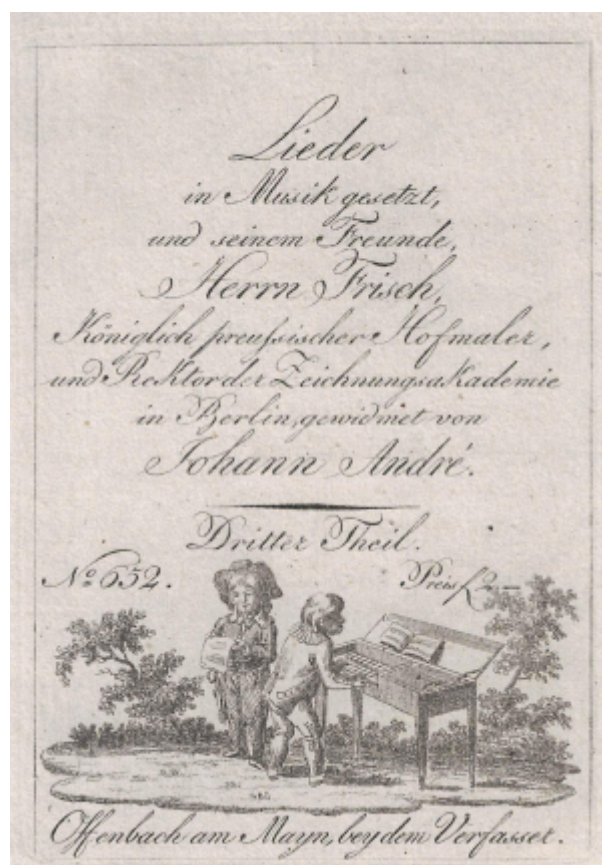 Lieder
in Musik gesetzt,
und seinem Freunde,
Herrn Frisch,
Königlich preußischer Hofmaler,
und Rektor der Zeichnungsakademie
in Berlin, gewidmet von
Johann André.
Dritter Theil.
No 652.
Preis
Offenbach am Mayn, bey dem Verfasser.